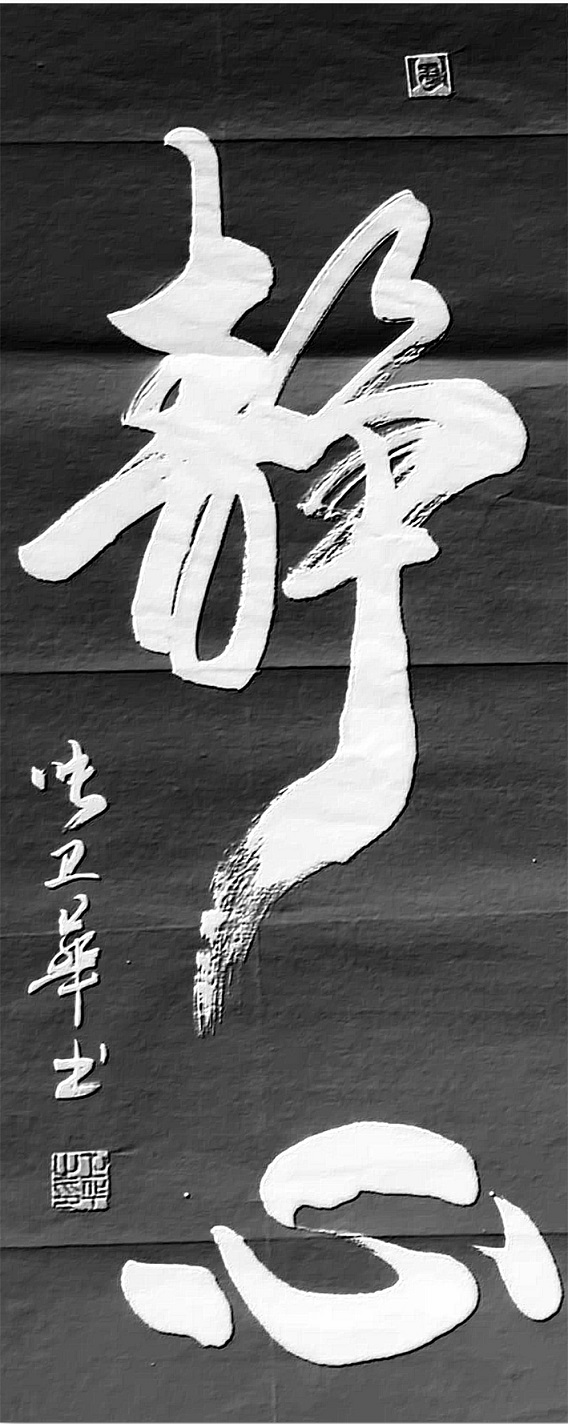 静心
张卫华书